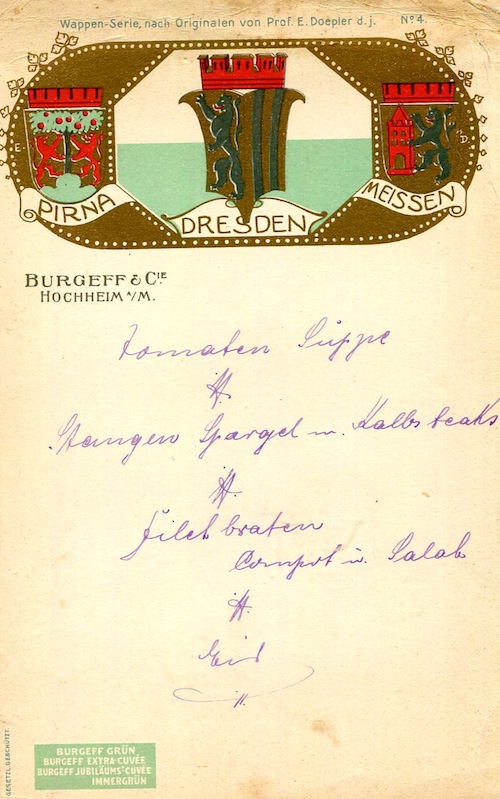 Wappen-Serie, nach Originalen von Prof. E. Doepler d. j. No 4.
E.
D.
PIRNA
DRESDEN
MEISSEN
BURGEFF & CIE
HOCHHEIM A/M.
Tomaten Suppe
Stangen Spargel m. Kalbsteaks
Filetbraten
Compot u. Salat
Eis
BURGEFF GRÜN
BURGEFF EXTRA-CUVÉE
BURGEFF JUBILÄUMS-CUVÉE
IMMERGRÜN
GESETZL. GESCHÜTZT.